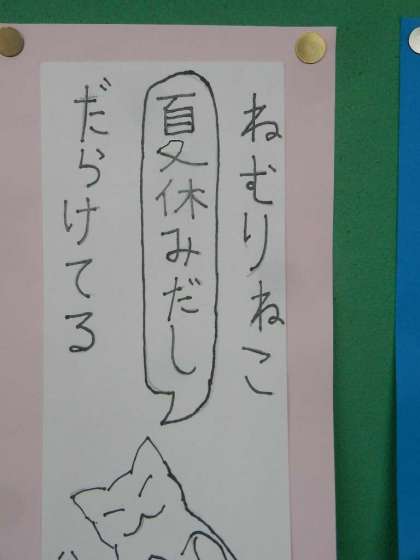 ねむりねこ
夏休みだし
だらけてる